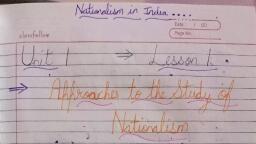 Nationalism in India ....
Date / 20
Page No.
classfellow
Unit 1 ⇒ Lesson 1.
⇒ Approaches to the Study of
Nationalism